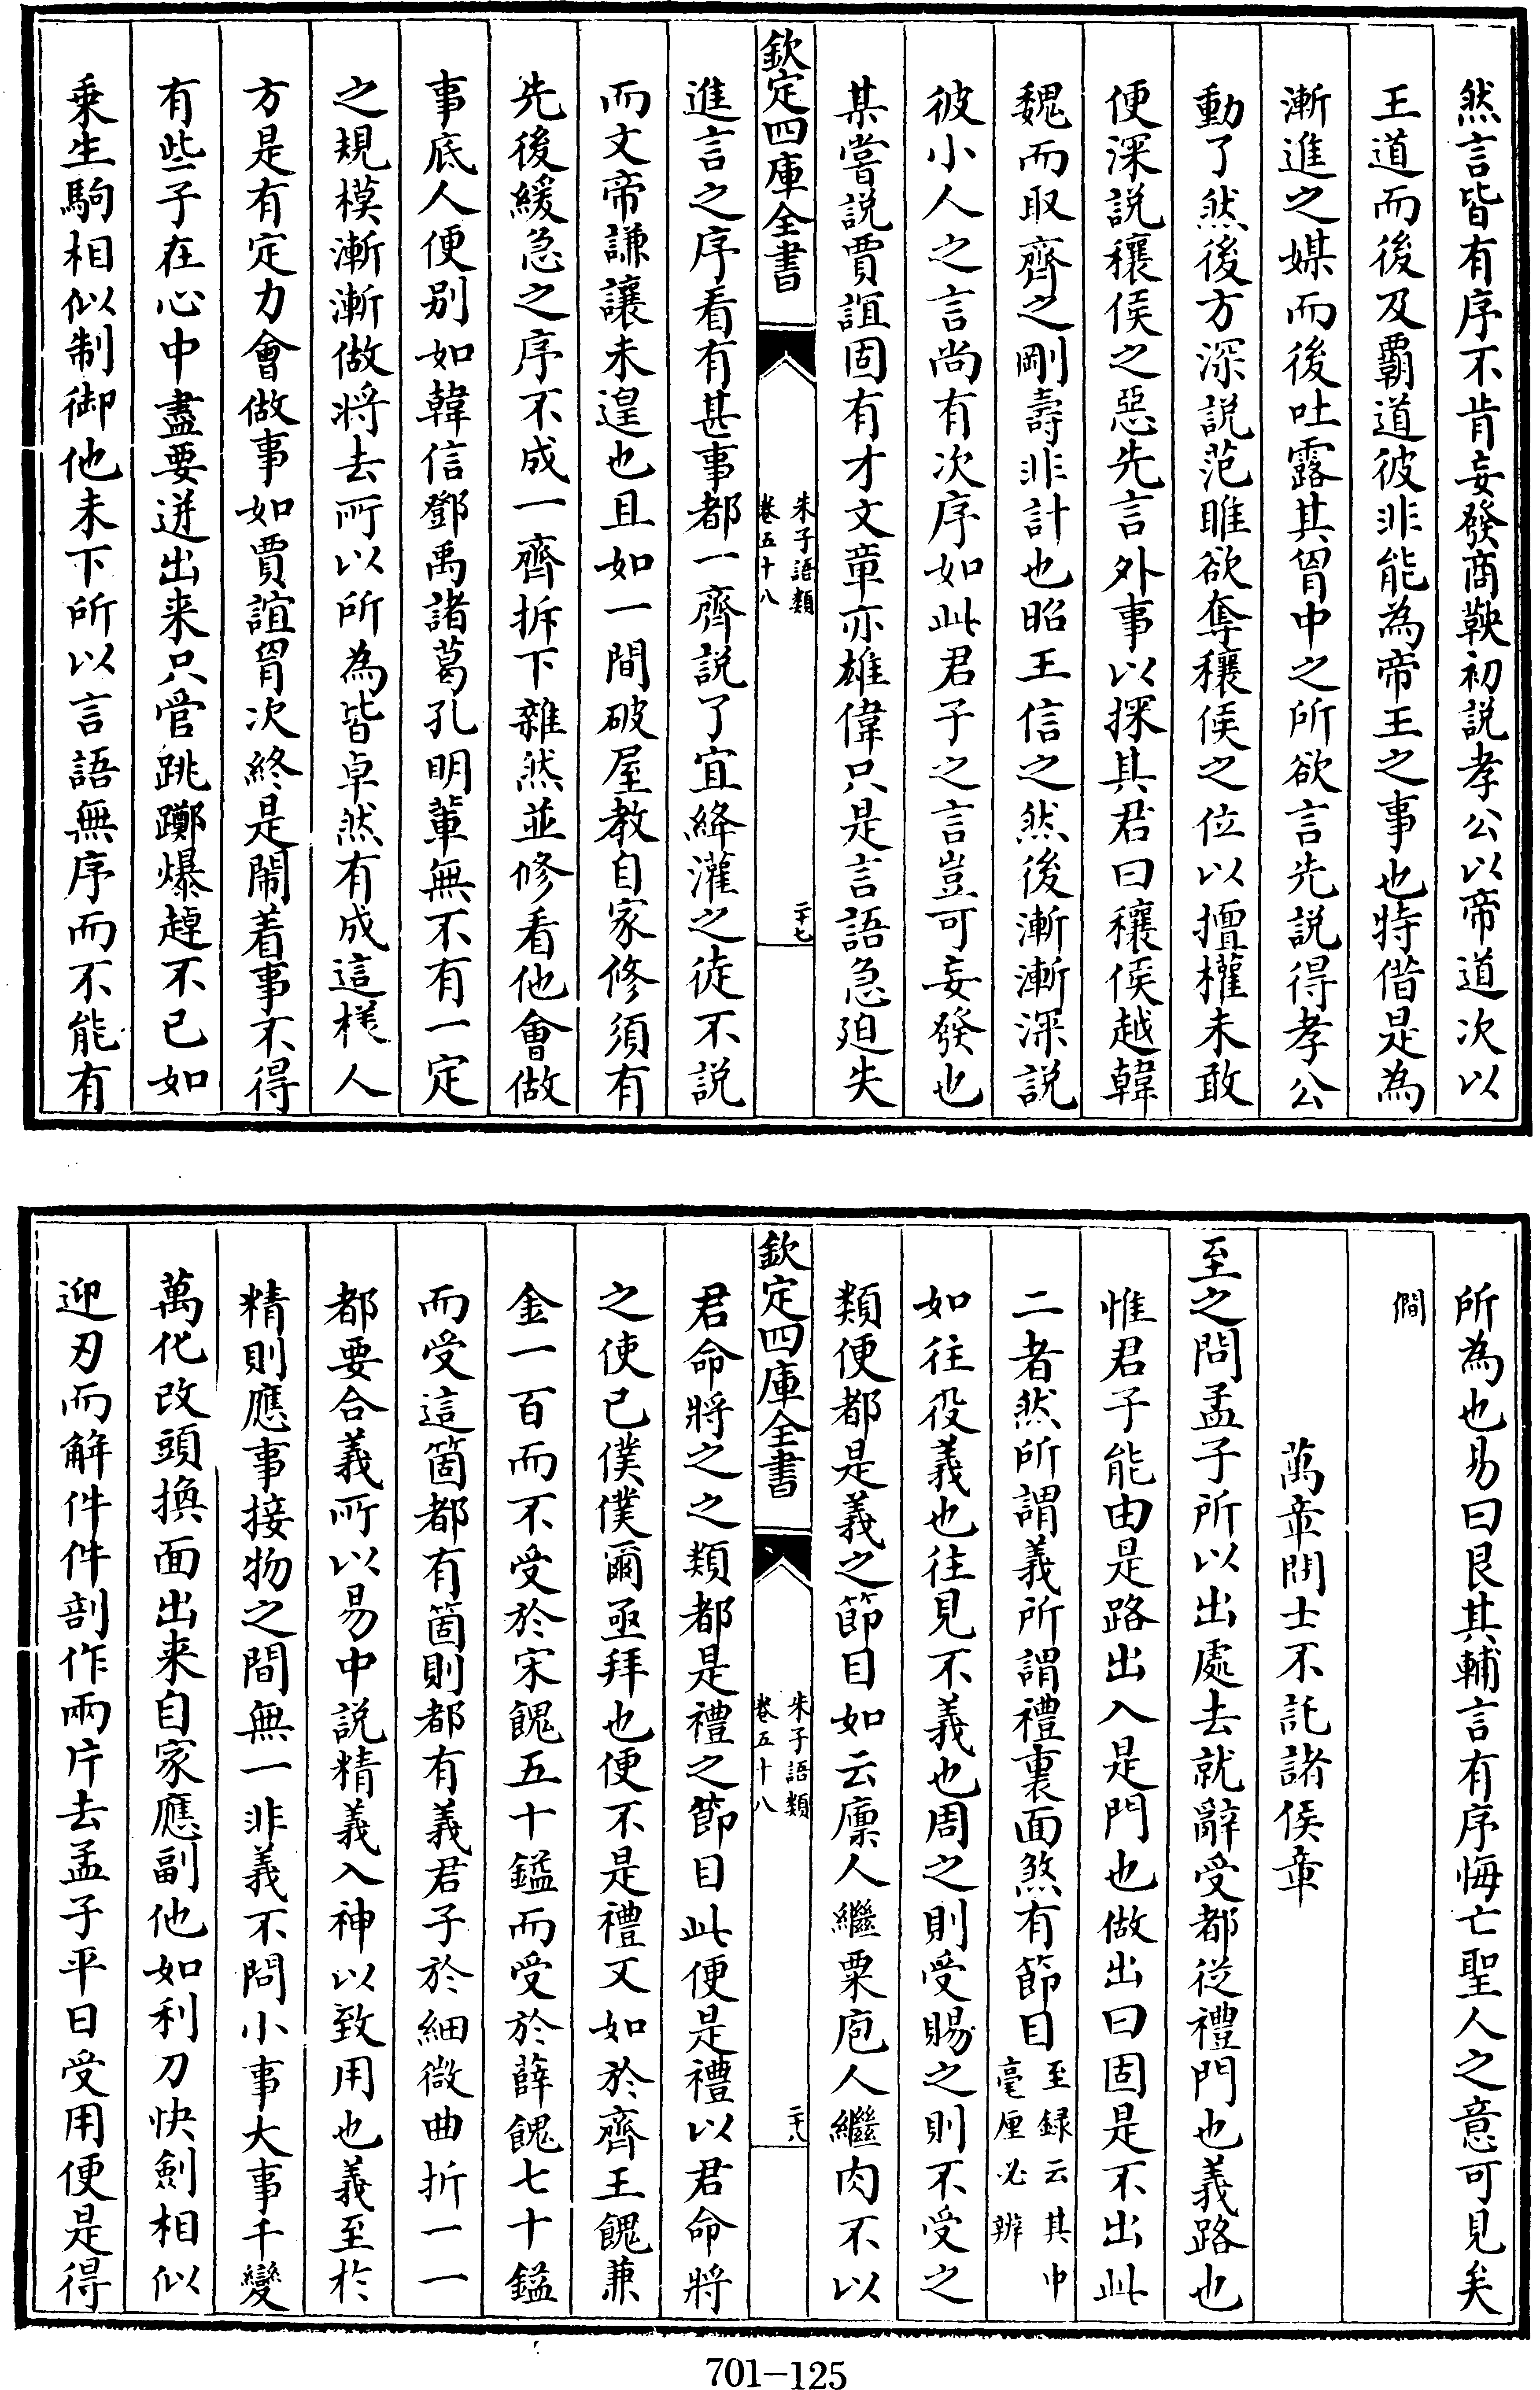 然言皆有序不肯妄發商鞅初説孝公以帝道次以
王道而後及覇道彼非能為帝王之事也特借是為
漸進之媒而後吐露其胷中之所欲言先説得孝公
動了然後方深説范睢欲奪穰侯之位以擅權未敢
便深説穰侯之惡先言外事以探其君曰穰侯越韓
魏而取齊之剛壽非計也昭王信之然後漸漸深説
彼小人之言尚有次序如此君子之言豈可妄發也
某嘗説賈誼固有才文章亦雄偉只是言語急廹失
欽定四庫全書
朱子語類
卷五十八
二十七
進言之序看有甚事都一齊説了宜絳灌之徒不説
而文帝謙讓未遑也且如一間破屋教自家修須有
先後緩急之序不成一齊拆下雜然並修看他會做
事底人便别如韓信鄧禹諸葛孔明輩無不有一定
之規模漸漸做將去所以所為皆卓然有成這様人
方是有定力會做事如賈誼胷次終是閙着事不得
有些子在心中盡要迸出来只管跳躑爆趠不已如
乗生駒相似制御他未下所以言語無序而不能有
所為也易曰艮其輔言有序悔亡聖人之意可見矣
僩
萬章問士不託諸侯章
至之問孟子所以出處去就辭受都從禮門也義路也
惟君子能由是路出入是門也做出曰固是不出此
二者然所謂義所謂禮裏面煞有節目至録云其中
毫厘必辨
如往役義也往見不義也周之則受賜之則不受之
類便都是義之節目如云廪人繼粟庖人繼肉不以
欽定四庫全書
朱子語類
卷五十八
二十八
君命將之之類都是禮之節目此便是禮以君命將
之使已僕僕爾亟拜也便不是禮又如於齊王餽兼
金一百而不受於宋餽五十鎰而受於薛餽七十鎰
而受這箇都有箇則都有義君子於細微曲折一一
都要合義所以易中説精義入神以致用也義至於
精則應事接物之間無一非義不問小事大事千變
萬化改頭換面出来自家應副他如利刀快劍相似
迎刃而解件件剖作兩片去孟子平日受用便是得
701-125